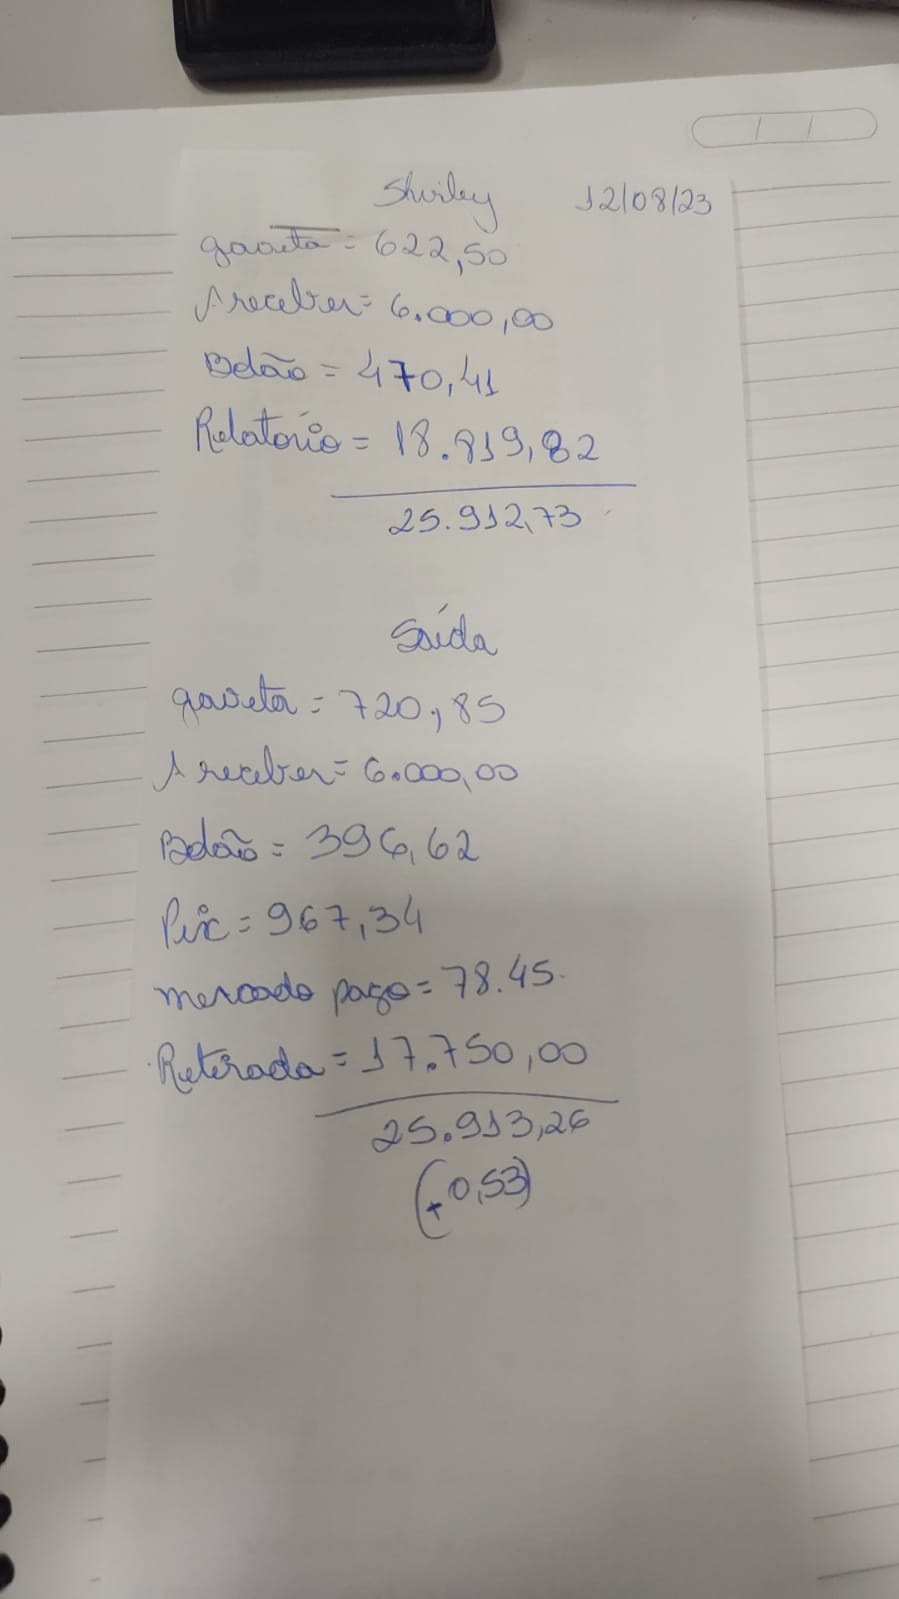 Shirley 12/08/23
gaveta = 622,50
A receber = 6.000,00
Bolão = 470,41
Relatorio = 18.819,82
25.912,73
Saída
gaveta = 720,85
A receber = 6.000,00
Bolão = 396,62
Pix = 967,34
mercado pago = 78.45
Retirada = 17.750,00
25.913,26
(+0,53)